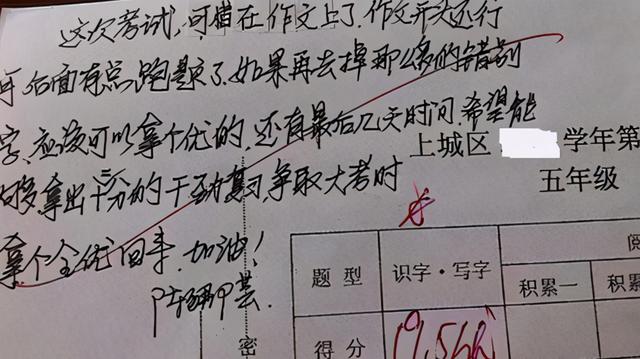 这次考试,可惜在作文上了.作文开头还行
可后面有点跑题了.如果再去掉那么多的错别
字,应该可以拿个优的,还有最后几天时间.希望能
上城区 学年第
够拿出十二分的干劲复习.争取大考时
五年级
拿个全优回来.加油!
题 型 识字·写字 积累一 积累
得 分 19.5
密